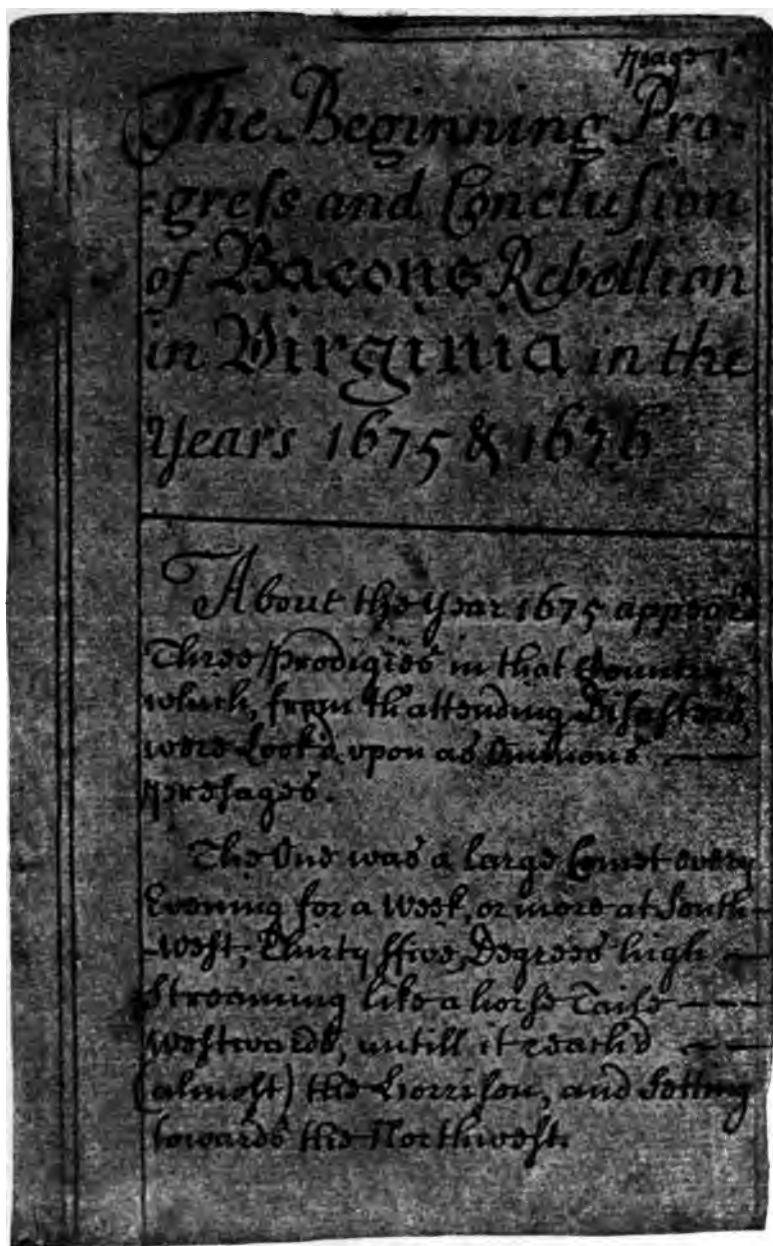 page 1st
The Beginning Pro=
=greſs and Concluſion
of Bacons Rebellion
in Virginia in the
Years 1675 & 1676
About the Year 1675 appear'd
Three Prodigies in that Country,
which, from th'attending Diſaſters,
were Look'd upon as Ominous
Presages.
The One was a large Comet every
Evening for a Week, or more at South-
-Weſt, Thirty ffive Degrees high
Streaming like a horſe Taile
Weſtwards, untill it reach'd
(almoſt) the Horriſon, and Setting
towards the Northweſt.